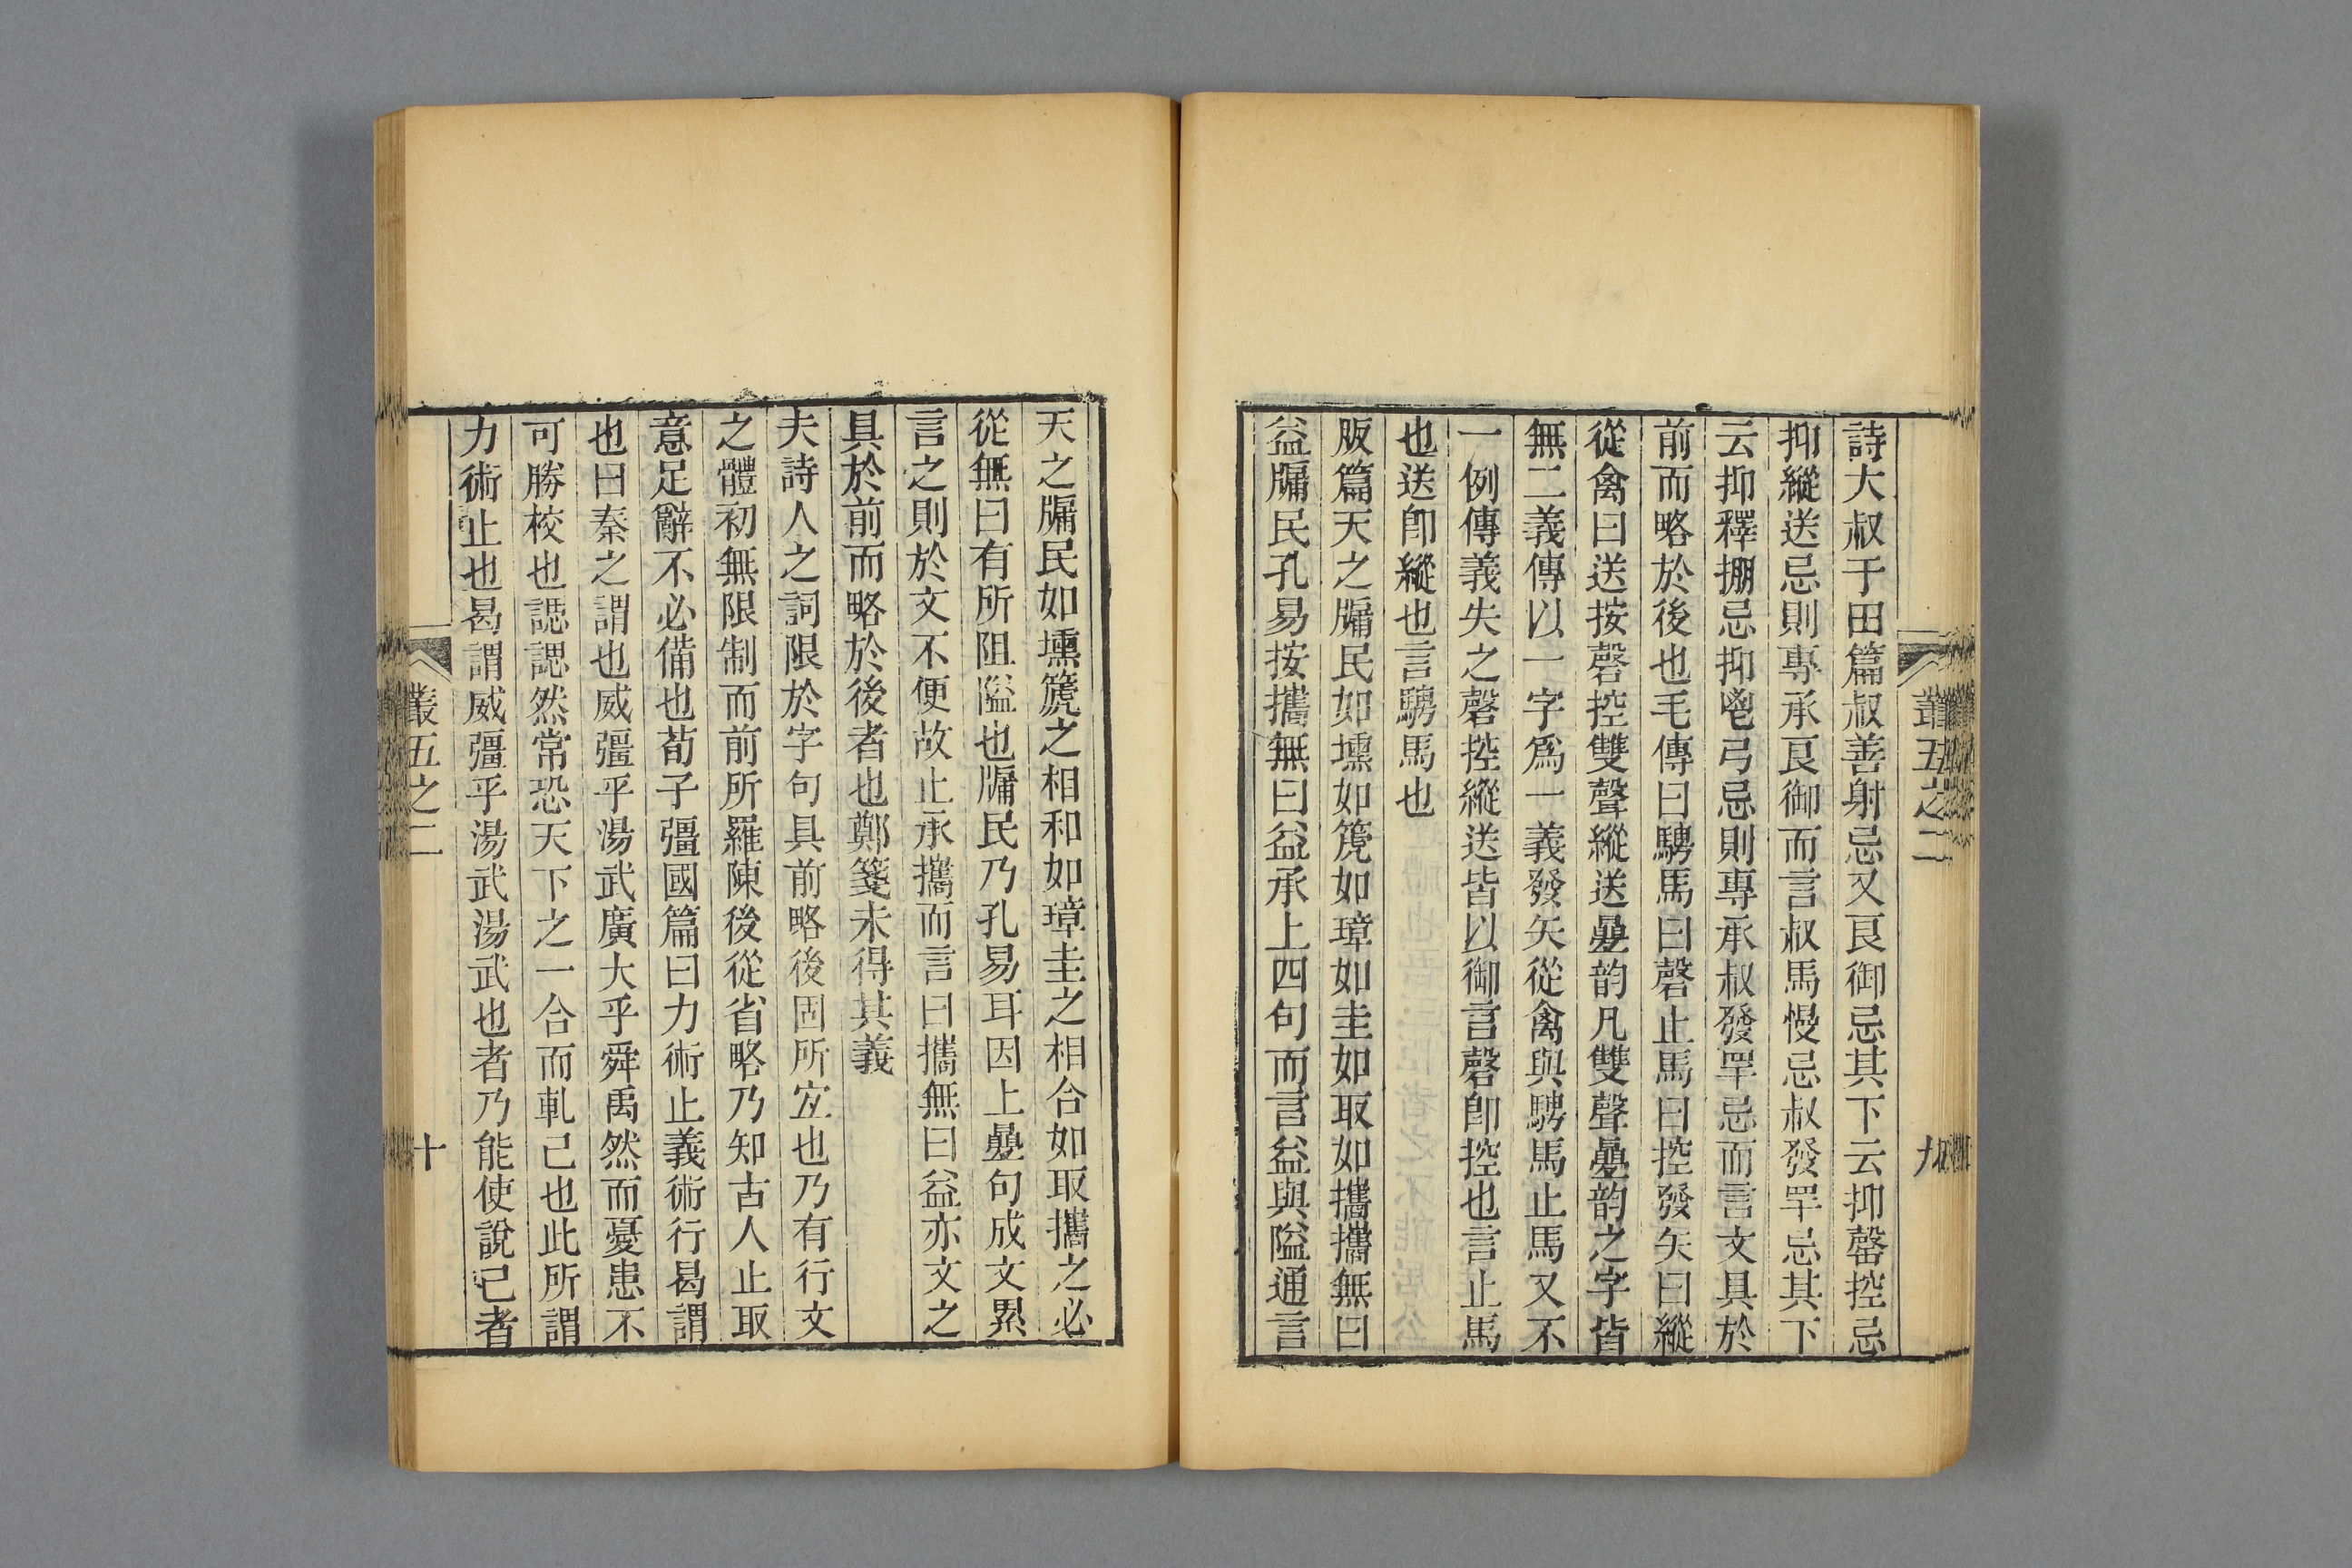 叢五之二
九
詩大叔于田篇叔善射忌又良御忌其下云抑罄控忌
抑縱送忌則專承良御而言叔馬慢忌叔發罕忌其下
云抑釋掤忌抑鬯弓忌則專承叔發罕忌而言文具於
前而略於後也毛傳曰騁馬曰磬止馬曰控發矢曰縱
從禽曰送按磬控雙聲縱送曡韵凡雙聲曡韵之字皆
無二義傳以一字爲一義發矢從禽與騁馬止馬又不
一例傳義失之磬控縱送皆以御言磬卽控也言止馬
也送卽縱也言騁馬也
版篇天之牖民如壎如箎如璋如圭如取如攜攜無曰
益牖民孔易按攜無曰益承上四句而言益與隘通言
天之牖民如壎箎之相和如璋圭之相合如取攜之必
從無曰有所阻隘也牖民乃孔易耳因上曡句成文累
言之則於文不便故止承攜而言曰攜無曰益亦文之
具於前而略於後者也鄭箋未得其義
夫詩人之詞限於字句具前略後固所宜也乃有行文
之體初無限制而前所羅陳後從省略乃知古人止取
意足辭不必備也荀子彊國篇曰力術止義術行曷謂
也曰秦之謂也威彊乎湯武廣大乎舜禹然而憂患不
可勝校也諰諰然常恐天下之一合而軋己也此所謂
力術止也曷謂威彊乎湯武湯武也者乃能使說己者
叢五之二
十